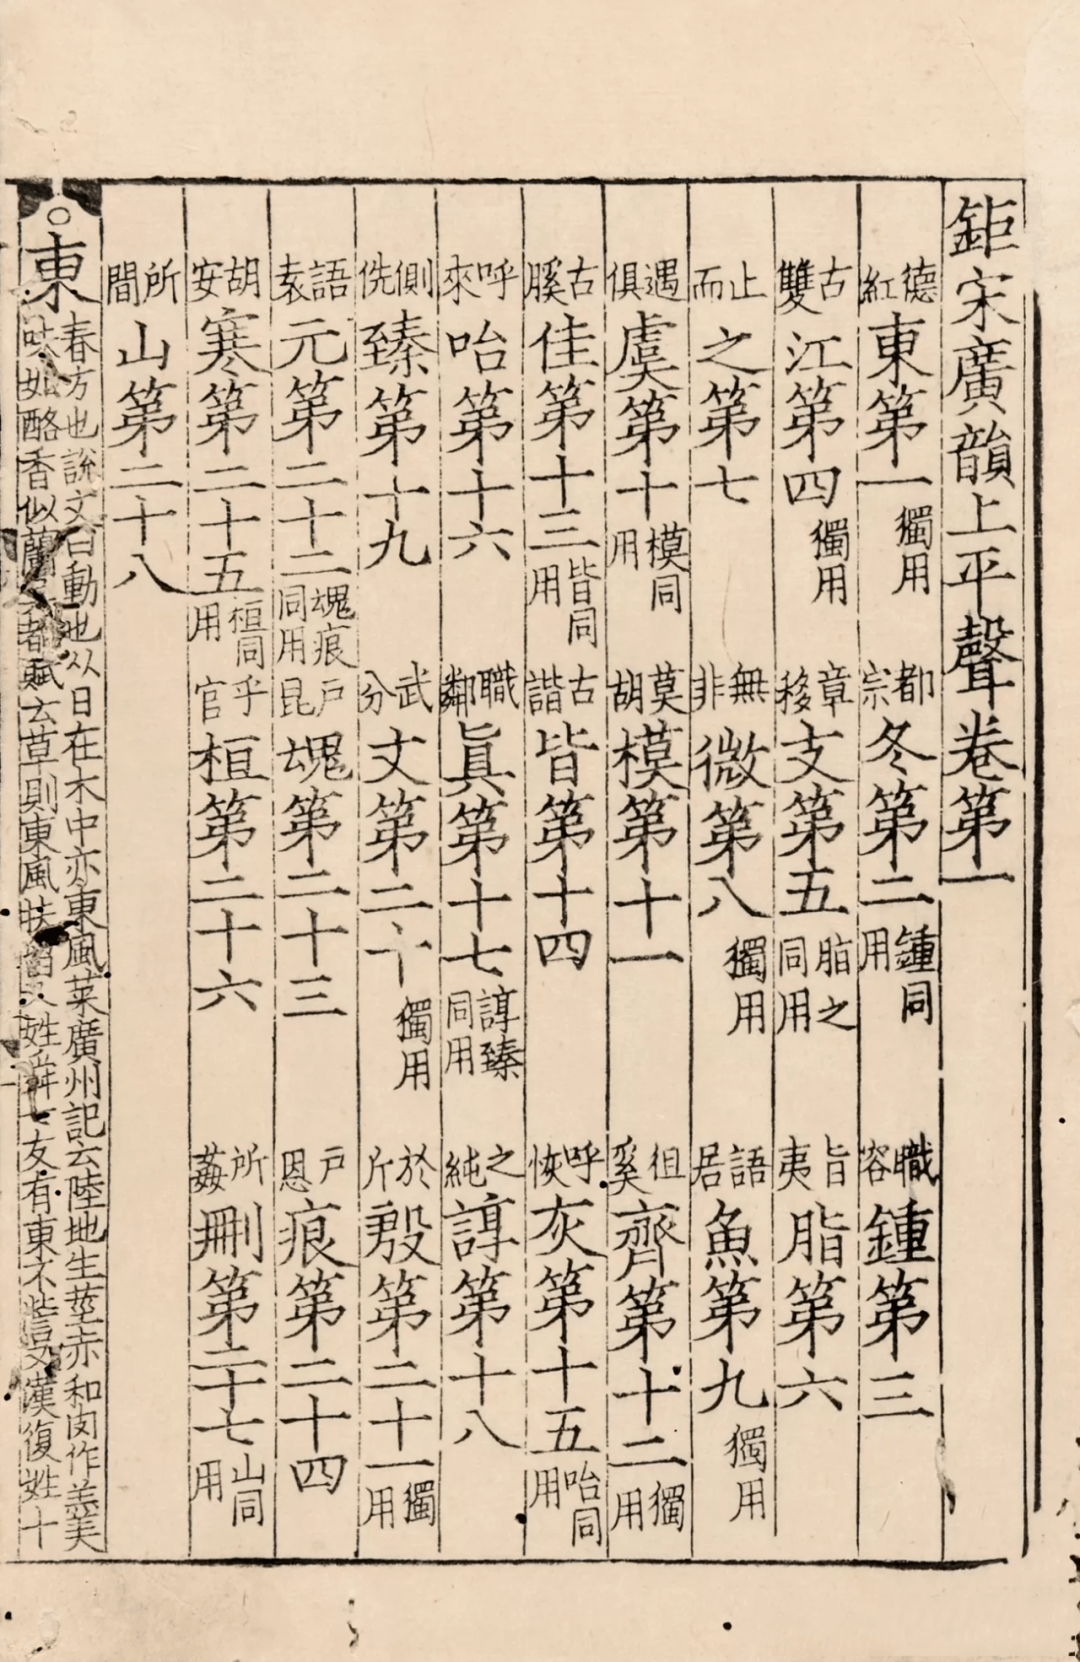 鉅宋廣韻上平聲卷第一
德紅東第一獨用 都宗冬第二鍾同用 職容鍾第三
古雙江第四獨用 章移支第五脂之同用 旨夷脂第六
止而之第七 無非微第八獨用 語居魚第九獨用
遇俱虞第十模同用 莫胡模第十一 徂奚齊第十二獨用
古膎佳第十三皆同用 古諧皆第十四 呼恢灰第十五咍同用
呼來咍第十六 職鄰眞第十七諄臻同用 之純諄第十八
側侁臻第十九 武分文第二十獨用 於斤殷第二十一獨用
語袁元第二十二魂痕同用 戶昆魂第二十三 戶恩痕第二十四
胡安寒第二十五桓同用 乎官桓第二十六 所姦刪第二十七山同用
所閒山第二十八
東春方也說文曰動也从日在木中亦東風菜廣州記云陸地生莖赤和肉作羹美
味如酪香似蘭吳都賦云草則東風扶留又姓舜七友有東不訾又漢復姓十